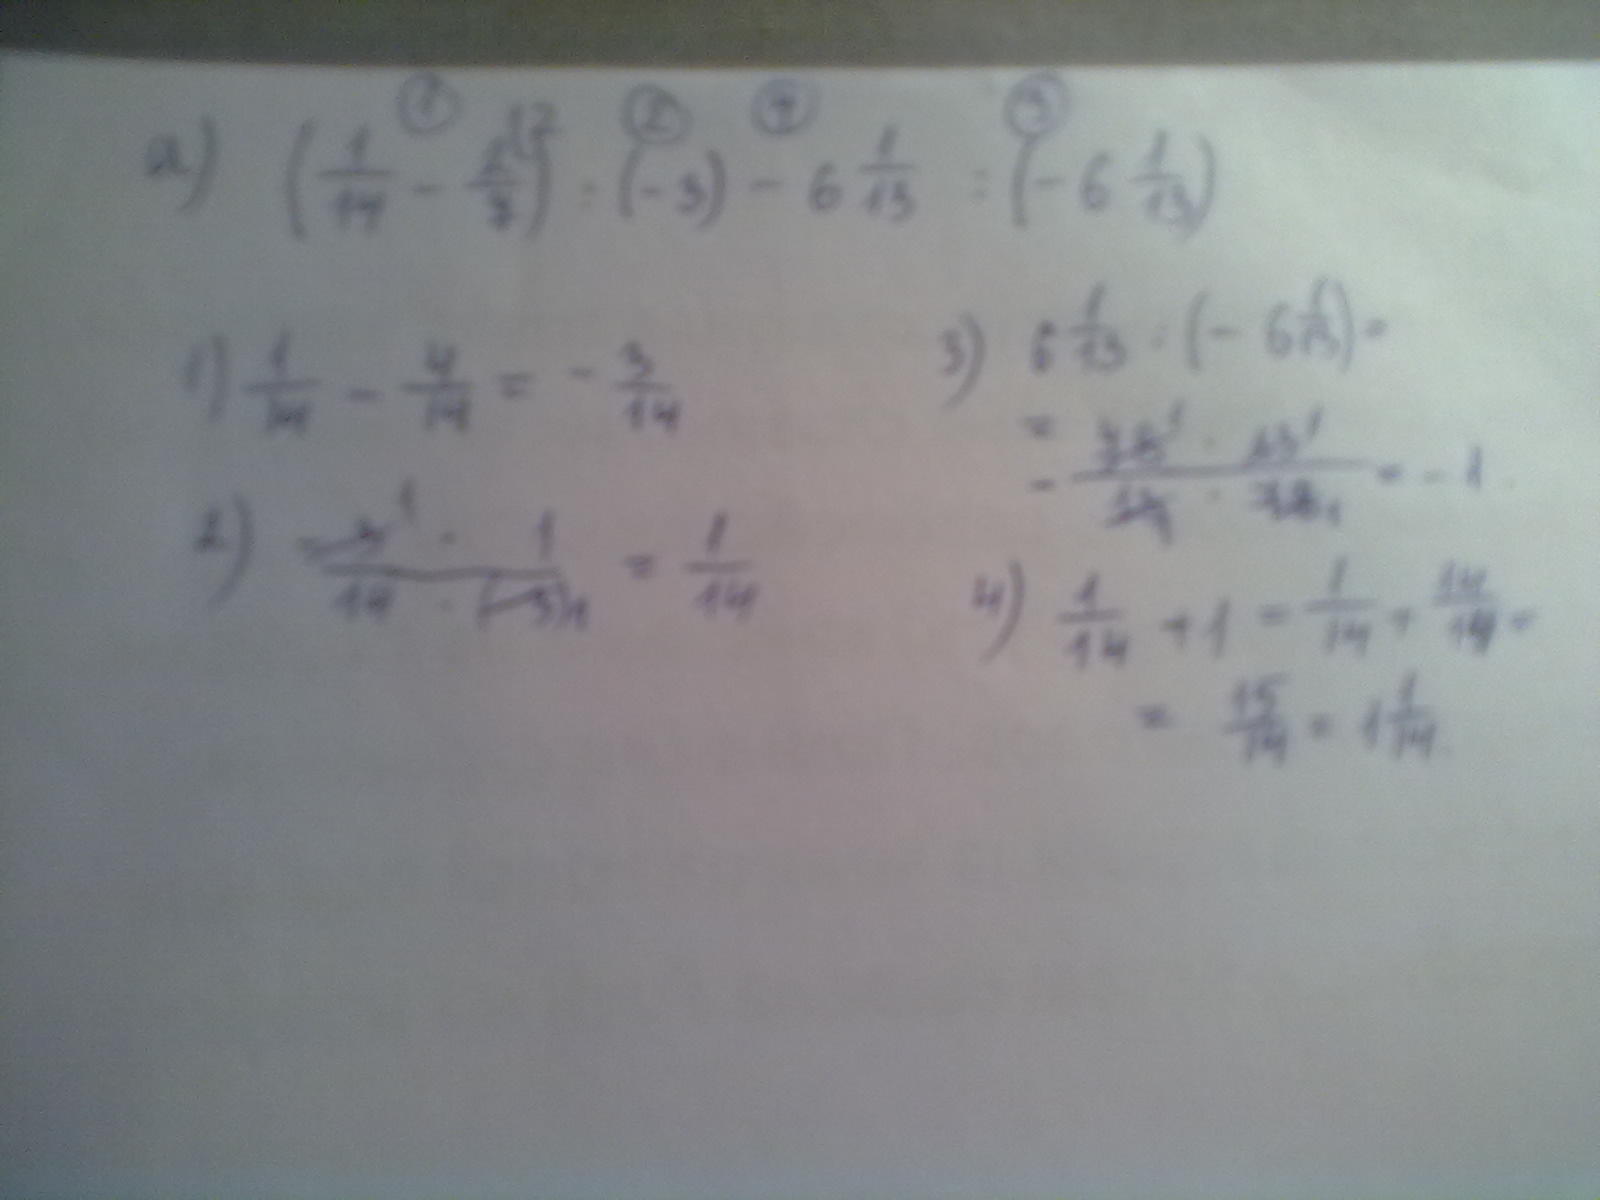 ① ② ④ ③
а) (1/14 - 2/7 |2) : (-3) - 6 1/13 : (-6 1/13)
1) 1/14 - 4/14 = - 3/14
2) -3¹ · 1 / 14 · (-3)₁ = 1/14
3) 6 1/13 : (- 6 1/13) =
= - 79¹ · 13¹ / 13₁ · 79₁ = - 1
4) 1/14 + 1 = 1/14 + 14/14 =
= 15/14 = 1 1/14